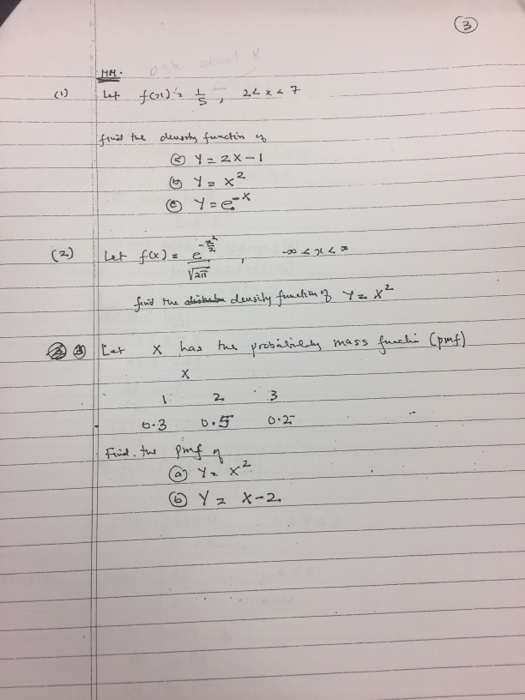 3
HW.
(1) Let f(x) = 1/5, 2 < x < 7
find the density function of
(a) Y = 2X-1
(b) Y = X²
(c) Y = e^-X
(2) Let f(x) = e^(-x²/2) / √2π, -∞ < x < ∞
find the density function of Y = X²
(3) Let X has the probability mass functi (pmf)
X
1 2 3
0.3 0.5 0.2
Find the pmf of
(a) Y = X²
(b) Y = X-2